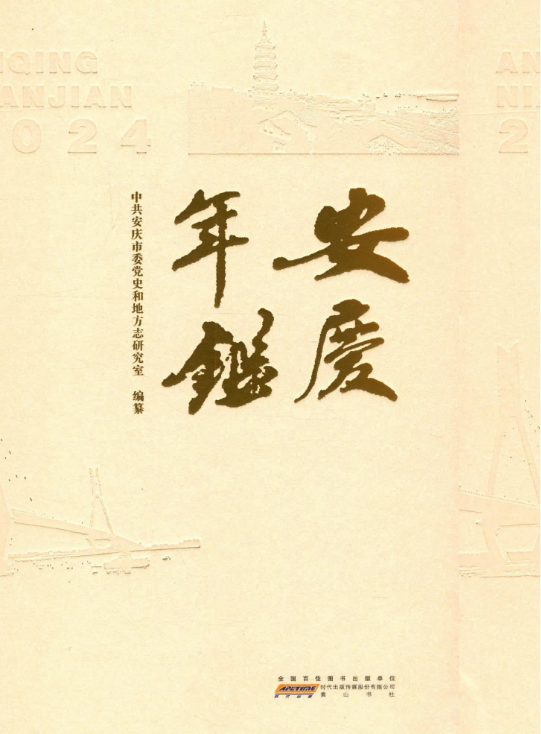 NQING
ANJIAN
024
AN
NI
2
安慶
年鑑
中共安庆市委党史和地方志研究室 编纂
全国百佳图书出版单位
APCTIME 时代出版传媒股份有限公司
时代出版 黄山书社